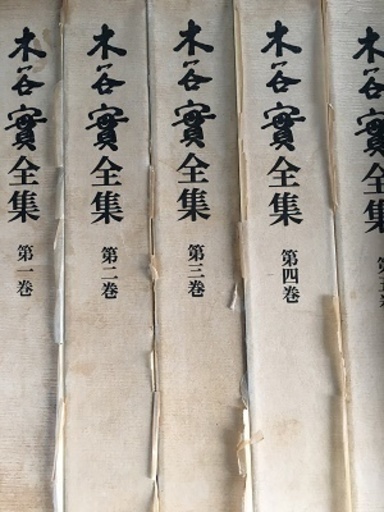 木谷實全集 第一巻
木谷實全集 第二巻
木谷實全集 第三巻
木谷實全集 第四巻
木谷實全集 第五